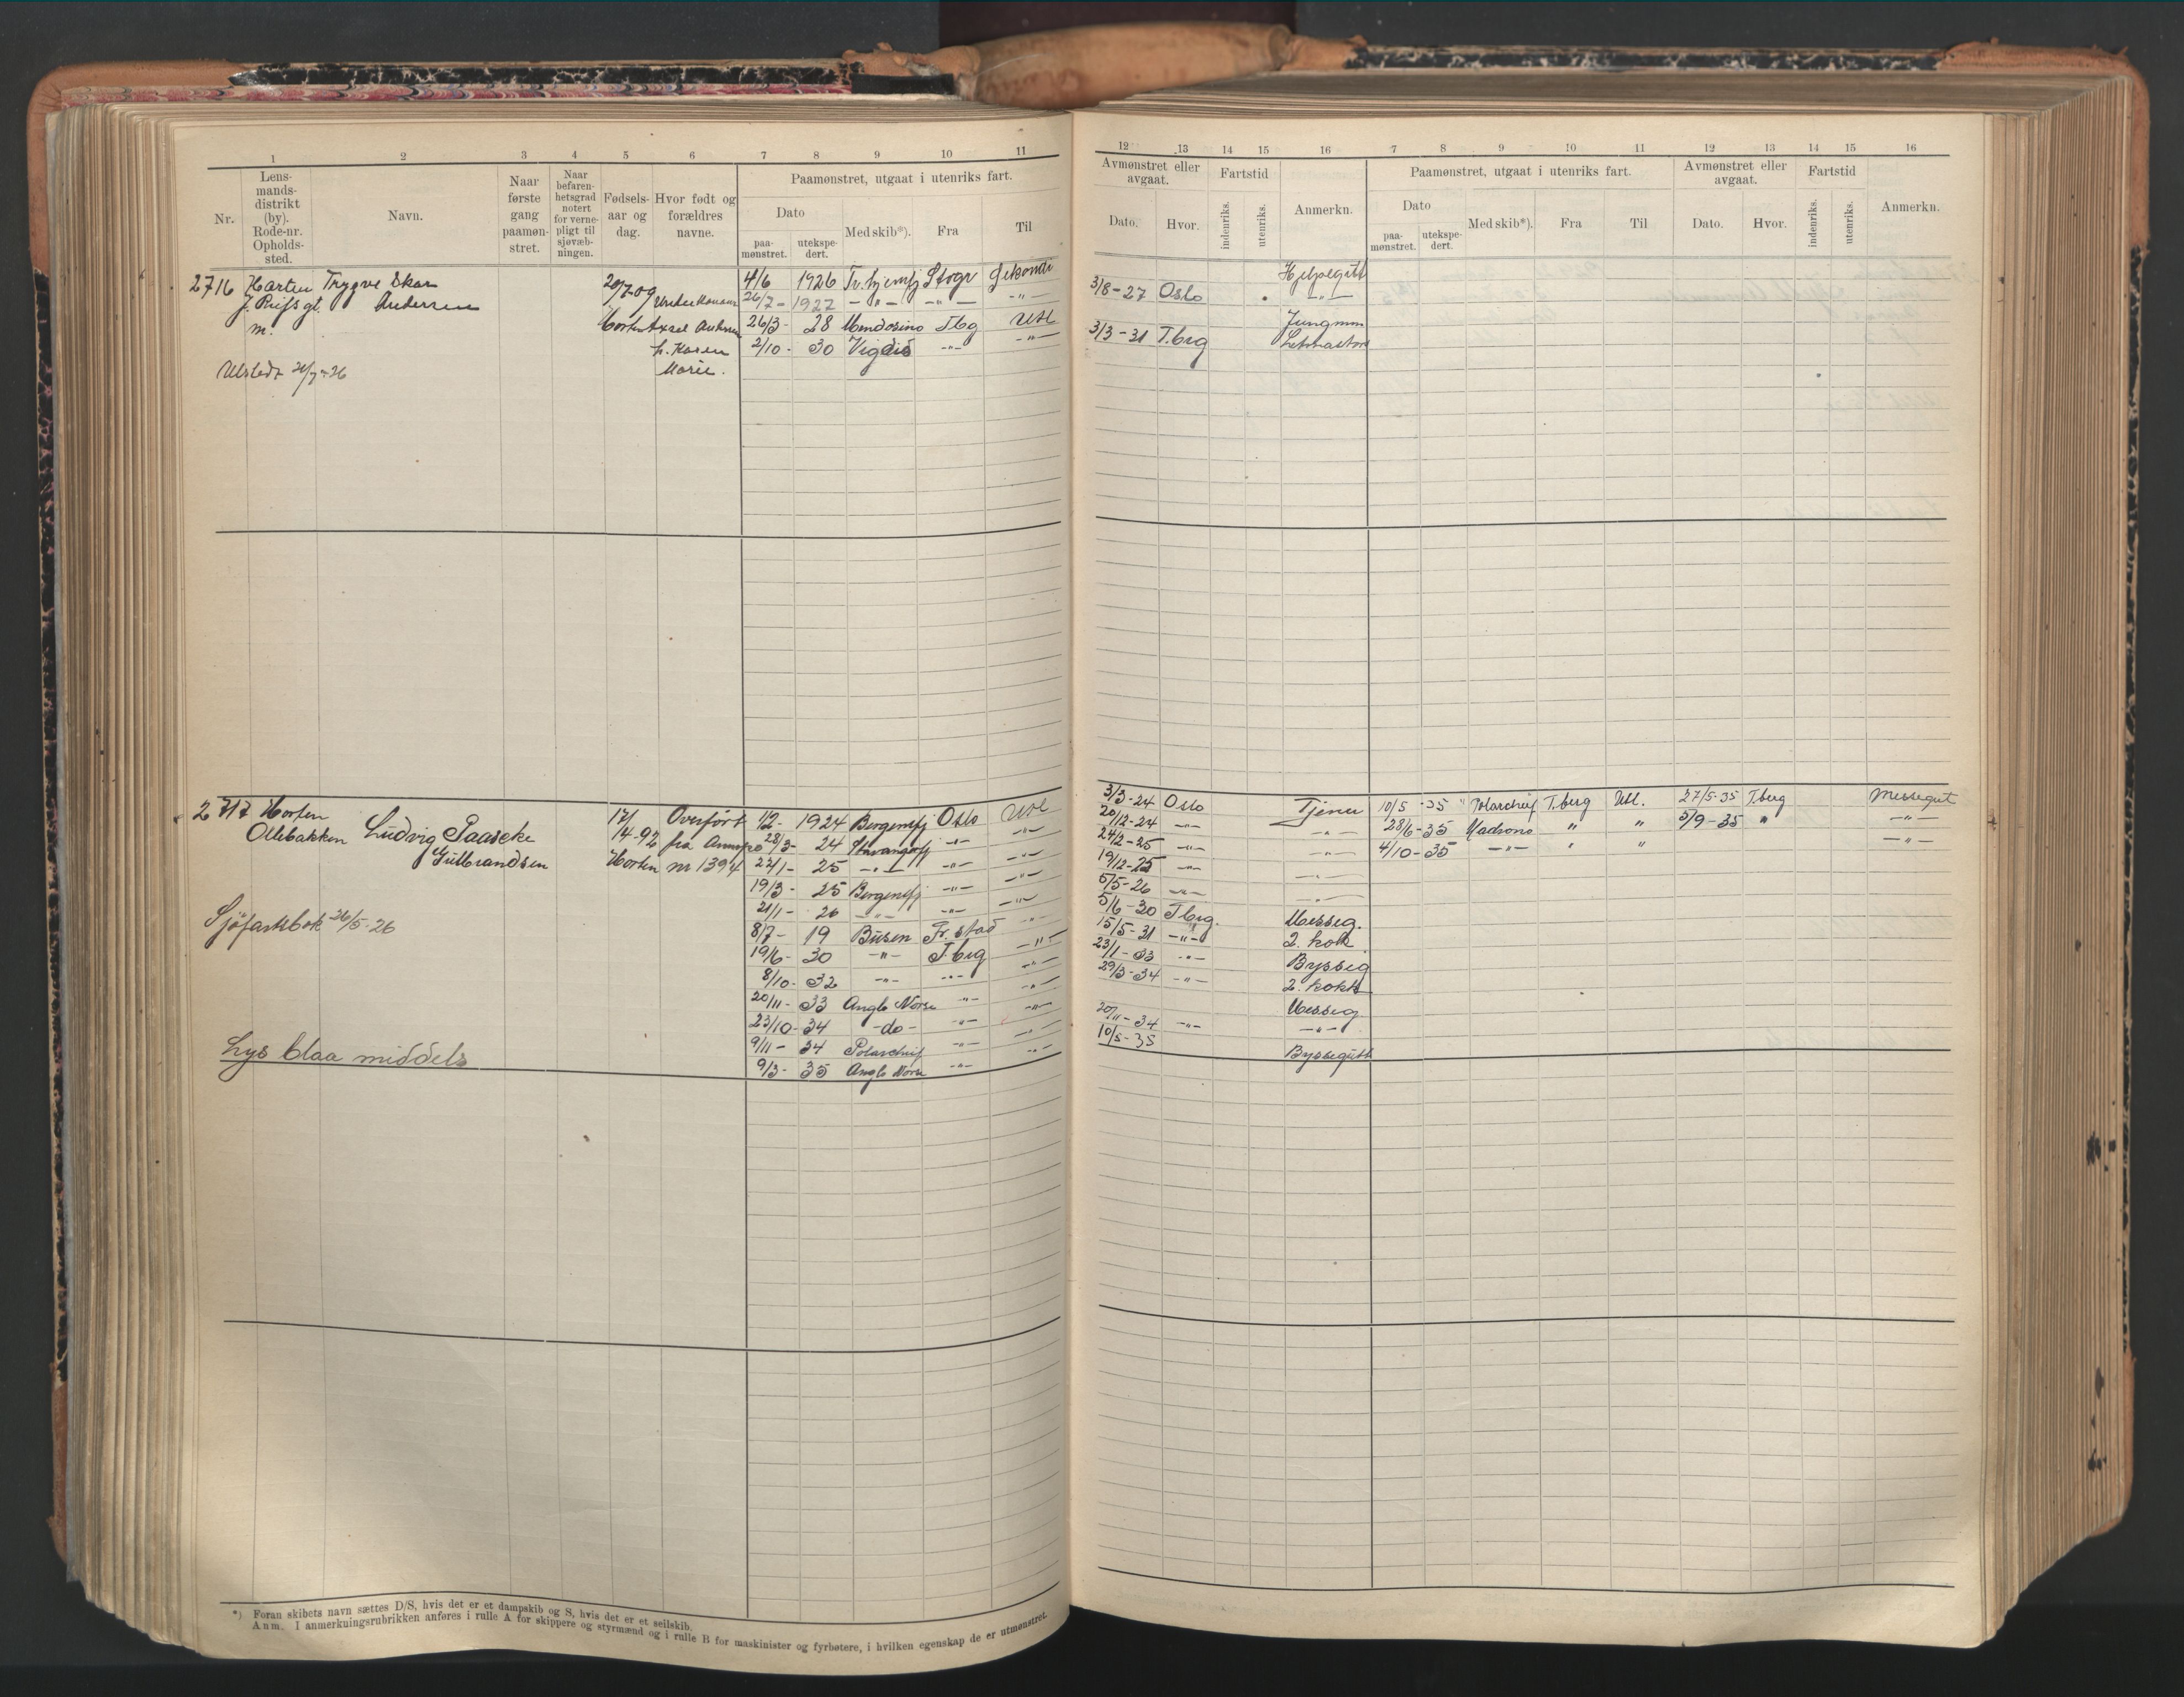 1 2 3 4 5 6 7 8 9 10 11
Nr.
Lens-
mands-
distrikt
(by).
Rode-nr.
Opholds-
sted.
Navn.
Naar
første
gang
paamøn-
stret.
Naar
befaren-
hetsgrad
notert
for verne-
pligt til
sjøvæb-
ningen.
Fødsels-
aar og
dag.
Hvor født og
forældres
navne.
Paamønstret, utgaat i utenriks fart.
Dato
paa-
mønstret.
utekspe-
dert.
Med skib*).
Fra
Til
2716 Horten Trygve Skar 20/7-09 4/6 1926
J. gt. Andersen 26/7- 1927 -"- -"- -"-
m. Horten Axel 26/3- 28 Mendosino Tbg Utl
h. Karen 2/10- 30 Vigdis -"- -"-
Utstedt 21/7-26 Marie.
2717 Horten 17/ Overført 1/2- 1924 Bergensfj Oslo Utl
Ollebakken Ludvig Paascke 14-92 fra 28/3- 24 Stavangerfj -"- -"-
Gulbrandsen Horten nr 1394 22/1- 25 -"- -"- -"-
19/3- 25 Bergensfj -"- -"-
21/1- 26 -"- -"- -"-
Sjøfartsbok 26/5-26 8/7- 19 Busen Fr.stad -"-
19/6- 30 -"- T.brg -"-
8/10- 32 -"- -"- -"-
20/11- 33 Anglo Norse -"- -"-
23/10- 34 -do- -"- -"-
Lys blaa middels 9/11- 34 -"- -"-
9/3- 35 Anglo Norse -"- -"-
*) Foran skibets navn sættes D/S, hvis det er et dampskib og S, hvis det er et seilskib.
Anm. I anmerkningsrubrikken anføres i rulle A for skippere og styrmænd og i rulle B for maskinister og fyrbøtere, i hvilken egenskap de er utmønstret.
12 13 14 15 16 7 8 9 10 11 12 13 14 15 16
Avmønstret eller
avgaat.
Dato.
Hvor.
Fartstid
indenriks.
utenriks.
Anmerkn.
Paamønstret, utgaat i utenriks fart.
Dato
paa-
mønstret.
utekspe-
dert.
Med skib*).
Fra
Til
Avmønstret eller
avgaat.
Dato.
Hvor.
Fartstid
indenriks.
utenriks.
Anmerkn.
Hjelpegutt
3/8-27 Oslo -"-
Jungmm
3/3-31 T.brg Letmatros
3/3-24 Oslo Tjener 10/5 -35 T.berg Utl. 27/5-35 T.berg Messegut
20/12-24 -"- -"- 28/6-35 Madrono " " 5/9-35 " -"-
24/2-25 -"- -"- 4/10-35 -"- " " -"-
19/12-25 -"- -"-
5/5-26 -"- -"-
5/6-30 T.brg. Messeg.
15/5-31 -"- 2. kok
23/1-33 -"- Bysseg
29/3-34 -"- 2. kokk
Messeg
20/11-34 -"- -"-
10/5-35 Byssegutt